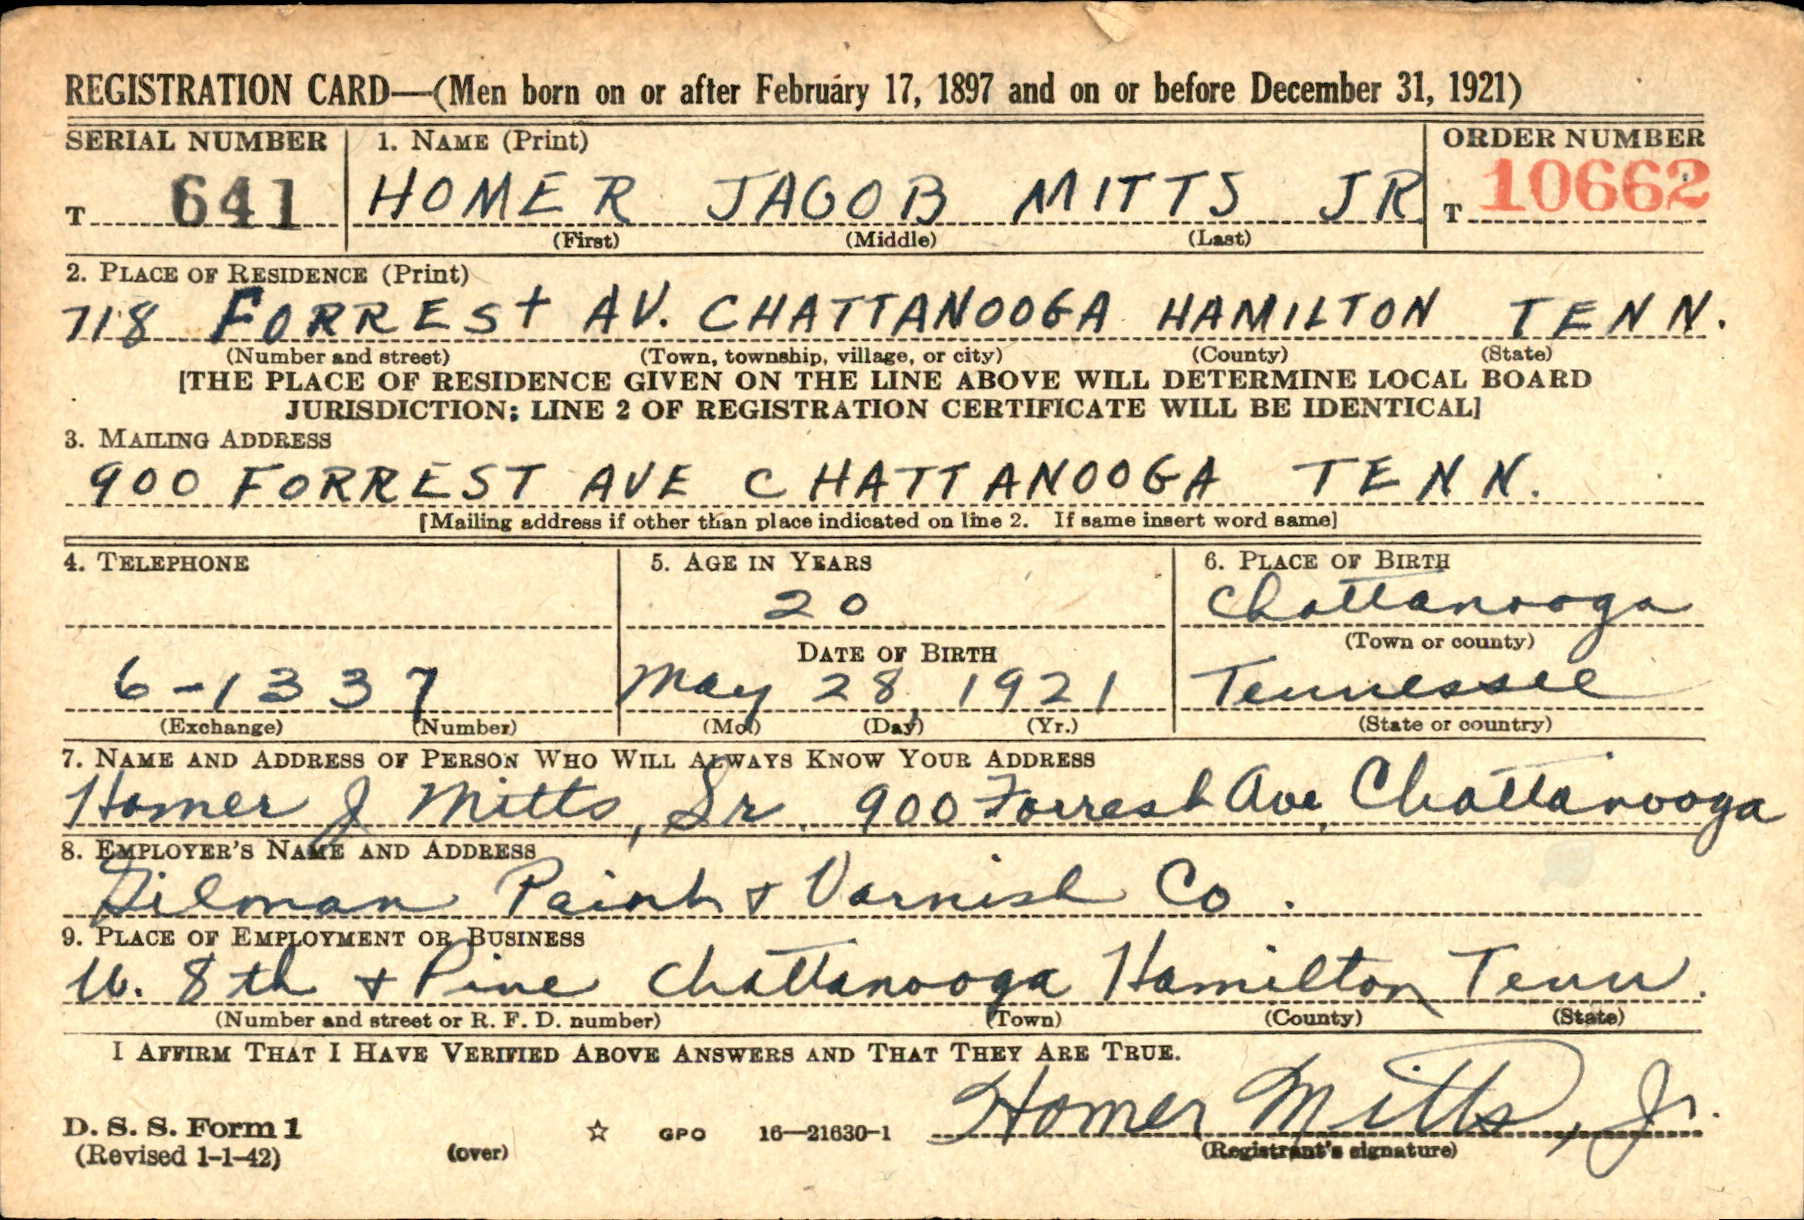 REGISTRATION CARD—(Men born on or after February 17, 1897 and on or before December 31, 1921)
SERIAL NUMBER 1. NAME (Print) ORDER NUMBER
T 641 HOMER JACOB MITTS JR T 10662
(First) (Middle) (Last)
2. PLACE OF RESIDENCE (Print)
718 FORREST AV. CHATTANOOGA HAMILTON TENN.
(Number and street) (Town, township, village, or city) (County) (State)
[THE PLACE OF RESIDENCE GIVEN ON THE LINE ABOVE WILL DETERMINE LOCAL BOARD
JURISDICTION; LINE 2 OF REGISTRATION CERTIFICATE WILL BE IDENTICAL]
3. MAILING ADDRESS
900 FORREST AVE CHATTANOOGA TENN.
[Mailing address if other than place indicated on line 2. If same insert word same]
4. TELEPHONE 5. AGE IN YEARS 6. PLACE OF BIRTH
20 Chattanooga
DATE OF BIRTH (Town or county)
6-1337 May 28, 1921 Tennessee
(Exchange) (Number) (Mo.) (Day) (Yr.) (State or country)
7. NAME AND ADDRESS OF PERSON WHO WILL ALWAYS KNOW YOUR ADDRESS
Homer J Mitts, Sr. 900 Forrest Ave, Chattanooga
8. EMPLOYER'S NAME AND ADDRESS
Gilman Paint & Varnish Co.
9. PLACE OF EMPLOYMENT OR BUSINESS
W. 8th & Pine Chattanooga Hamilton Tenn.
(Number and street or R. F. D. number) (Town) (County) (State)
I AFFIRM THAT I HAVE VERIFIED ABOVE ANSWERS AND THAT THEY ARE TRUE.
Homer Mitts, Jr.
D. S. S. Form 1
(Revised 1-1-42) (over) ☆ GPO 16—21630-1 (Registrant's signature)